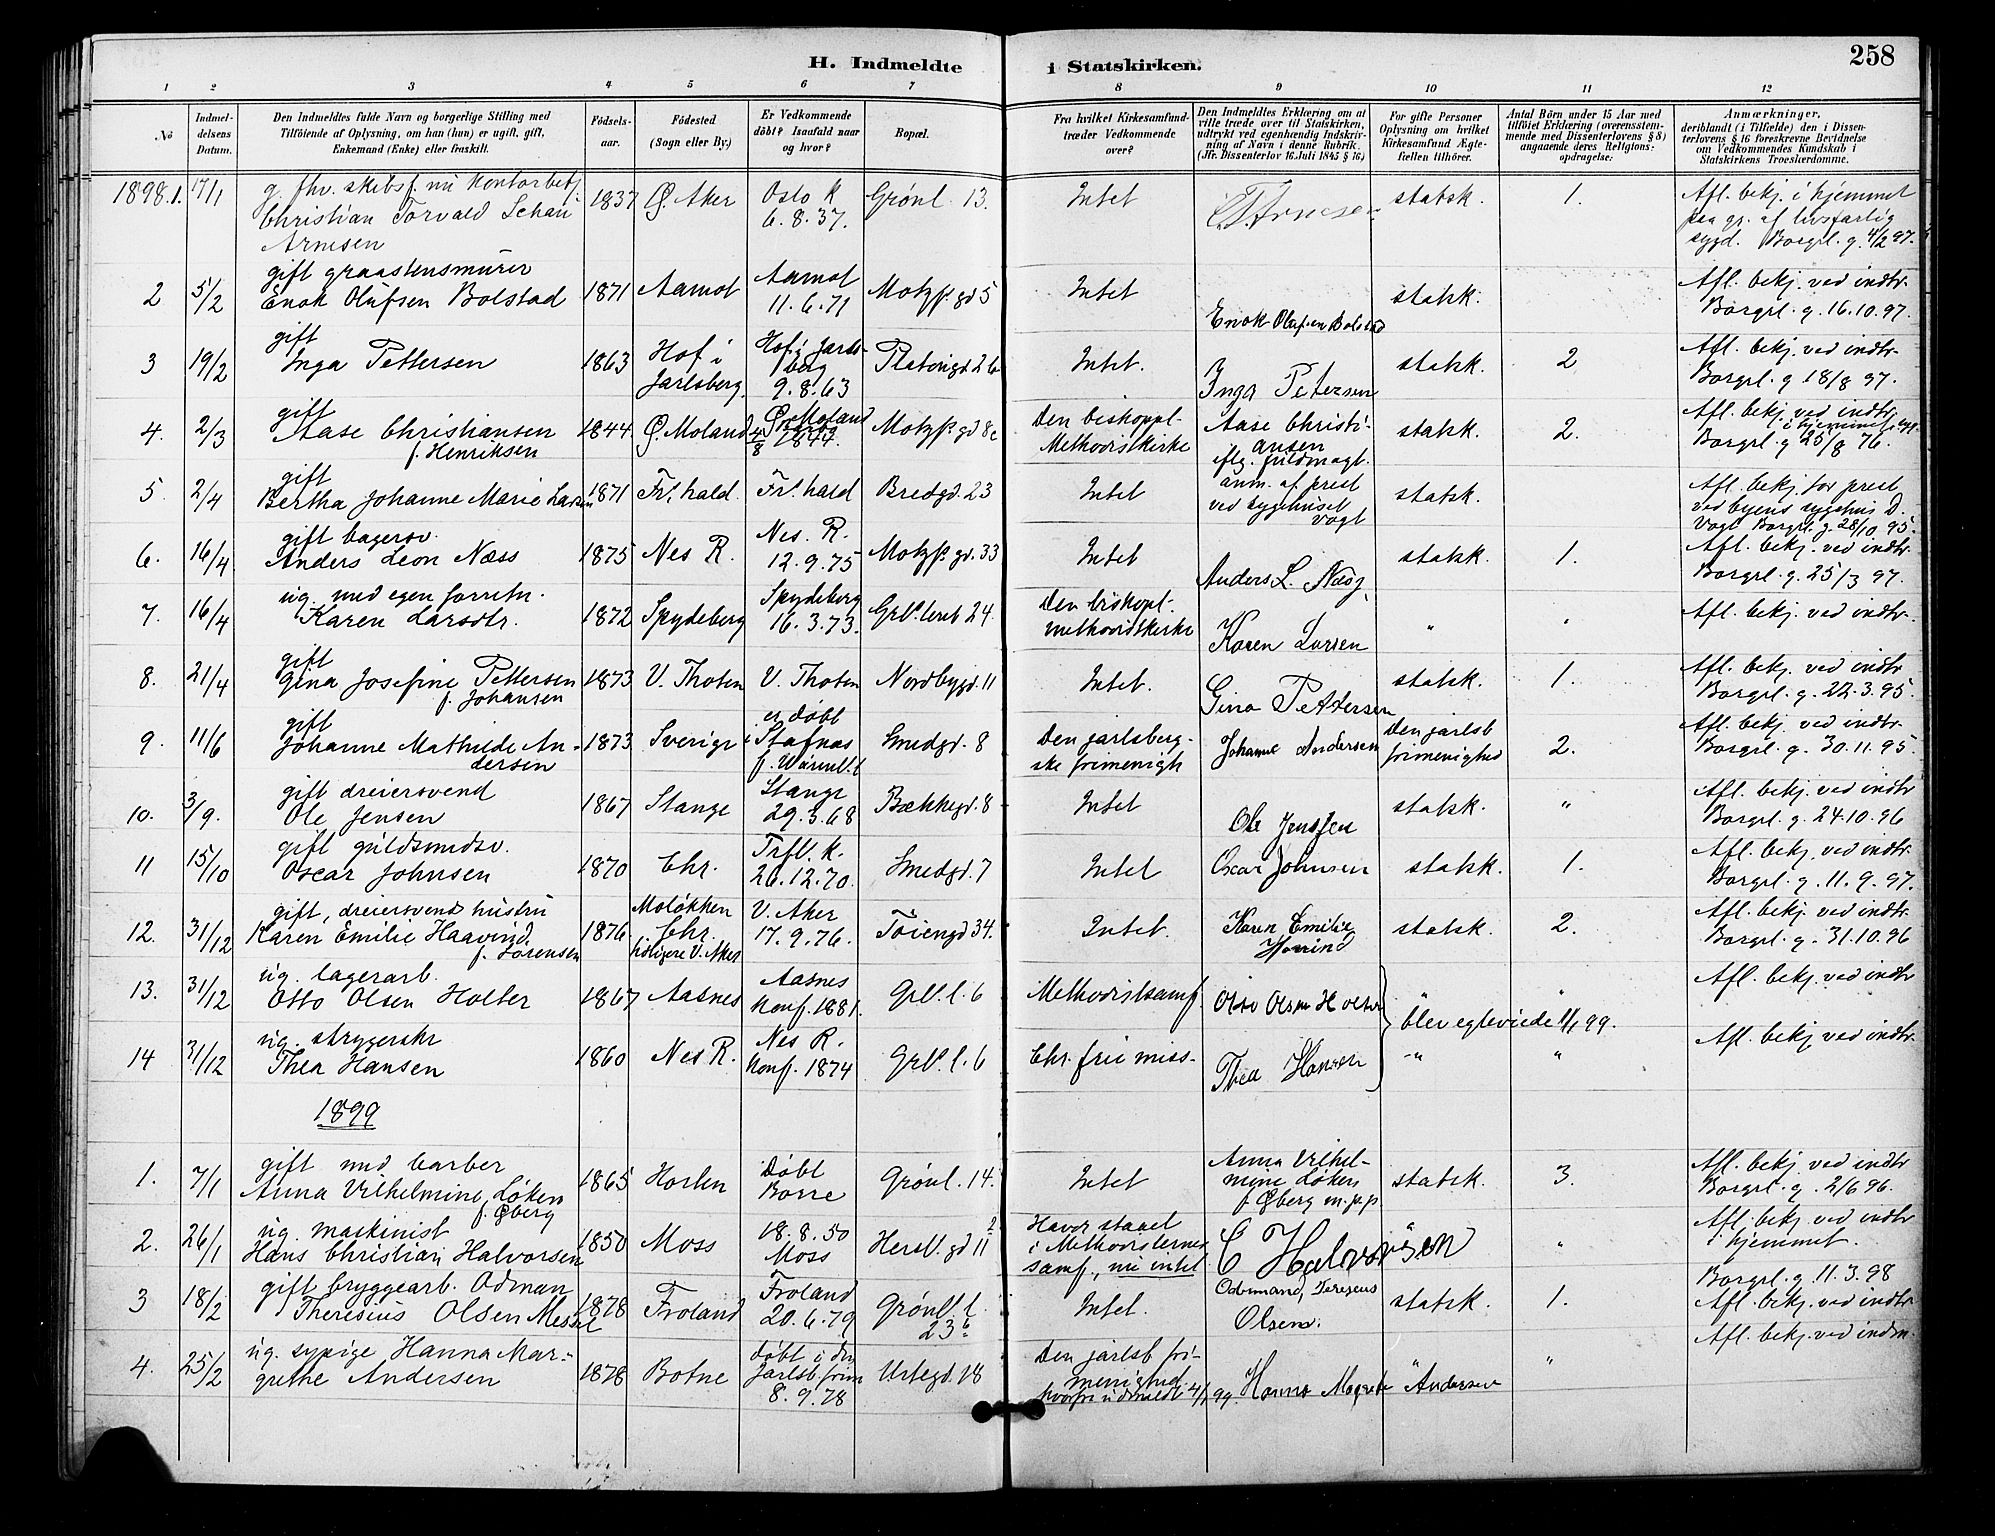 258
H. Indmeldte i Statskirken.
1 2 3 4 5 6 7 8 9 10 11 12
No
Indmel-
delsens
Datum.
Den Indmeldtes fulde Navn og borgerlige Stilling med
Tilföiende af Oplysning, om han (hun) er ugift, gift,
Enkemand (Enke) eller fraskilt.
Födsels-
aar.
Födested
(Sogn eller By.)
Er Vedkommende
döbt? Isaafald naar
og hvor?
Bopæl.
Fra hvilket Kirkesamfund
træder Vedkommende
over?
Den Indmeldtes Erklæring om at
ville træde over til Statskirken,
udtrykt ved egenhændig Indskriv-
ning af Navn i denne Rubrik.
(Jfr. Dissenterlov 16 Juli 1845 § 16)
For gifte Personer
Oplysning om hvilket
Kirkesamfund Ægte-
fællen tilhörer.
Antal Börn under 15 Aar med
tilföiet Erklæring (overensstem-
mende med Dissenterlovens § 8)
angaaende deres Religions-
opdragelse:
Anmærkninger,
deriblandt (i Tilfælde) den i Dissen-
terlovens § 16 foreskrevne Bevidnelse
om Vedkommendes Kundskab i
Statskirkens Troeslærdomme.
1898.1. 17/1
g. fhv. skibsf. nu kontorbetj.
Christian Torvald Schau
Arnesen
1837 Ø. Aker
Oslo K
6.8.37.
Grönl. 13.
Intet
statsk. 1.
Afl. bekj. i hjemmet
paa gr. af livsfarlig
sygd. Borgrl. g. 4/2 97.
2 5/2
gift graastensmurer
Enok Olufsen Bolstad
1871 Aamot
Aamot
11.6.71
Motzf. gd 5
Intet
Enok Olufsen Bolstad
statsk.
Afl. bekj. ved indtr.
Borgrl. g. 16.10.97.
3 19/2
gift
Inga Pettersen
1863
Hof i
Jarlsberg
Hof i Jarls-
berg
9.8.63
Platougd. 26
Intet.
Inga Petersen
statsk. 2
Afl. bekj. ved indtr.
Borgrl. g 18/8 97.
4. 2/3
gift
Aase Christiansen
f. Henriksen
1844 Ø. Moland
Ø. Moland
4/8 1844.
Motzf. gd 8c
Den biskoppl.
Methodistkirke
Aase Christi-
ansen
iflg. fuldmagt.
statsk. 2.
Afl. bekj. ved indtr.
i hjemmet
Borgrl. g 25/8 76.
5. 2/4
gift
Bertha Johanne Marie Larsen
1871 Fr. hald.
Fr. hald
Bredgd. 23
Intet
anm. af prest
ved sygehuset
Vogt
statsk.
Afl. bekj. for prest
ved byens sygehus D.
Vogt Borgrl. g. 28/10 95.
6. 16/4
gift bagersv.
Anders Leon Næss
1875 Nes R.
Nes. R.
12.9.75
Motzf. gd. 33
Intet
Anders L. Næss
statsk. 1.
Afl. bekj. ved indtr.
Borgrl. g. 25/3 97.
7. 16/4
ug. med egen forretn.
Karen Larsdtr.
1872 Spydeberg
Spydeberg
16.3.73.
Grl. leret 24.
Den biskopl.
methodistkirke
Karen Larsen
" "
Afl. bekj. ved indtr.
8. 21/4
gift
Gina Josefine Pettersen
f. Johansen
1873 V. Thoten
V. Thoten
Nordbygd. 11
Intet.
Gina Pettersen
statsk. 1.
Afl. bekj. ved indtr.
Borgrl. g. 22.3.95.
9. 11/6
gift
Johanne Mathilde An-
dersen
1873 Sverige
er döbt
i Stafnäs
f. Wärml.
Smedgd. 8
Den jarlsberg-
ske frimenigh
Johanne Andersen
Den jarlsb
frimenighed
2.
Afl. bekj. ved indtr.
Borgrl. g. 30.11.95.
10. 3/9.
gift dreiersvend
Ole Jensen
1867 Stange
Stange
29.3.68
Bækkegd. 8
Intet
Ole Jenssen
statsk. "
Afl. bekj. ved indtr
Borgrl. g. 24.10.96
11 15/10
gift guldsmedsv.
Oscar Johnsen
1870 Chr.
Trfl. k.
26.12.70.
Smedgd. 7
Intet
Oscar Johnsen
statsk. 1.
Afl. bekj. ved indtr.
Borgrl. g. 11.9.97.
12. 31/12
gift, dreiersvend hustru
Karen Emilie Haavind.
f. Sörensen
1876.
Moløkken
Chr.
tidligere V. Aker
V. Aker
17.9.76.
Töiengd 34.
Intet.
Karen Emilie
Haavind
statsk. 2.
Afl. bekj. ved indtr.
Borgrl. g. 31.10.96
13. 31/12
ug. lagerarb.
Otto Olsen Holter
1867 Aasnes
Aasnes
Konf. 1881.
Grl. l. 6
Methodistsamf.
Otto Olsen Holter
" "
blev egteviede 11/1 99.
Afl. bekj. ved indtr
14 31/12
ug. strygerske
Thea Hansen
1860 Nes R.
Nes R.
Konf. 1874
Grl. l. 6
Chr. frie miss-
Thea Hansen
" "
Afl. bekj. ved indtr.
1899
1. 7/1
gift med barber
Anna Vilhelmine Løken
f. Øberg
1865 Horten
Döbt
Borre
Grönl. 14.
Intet
Anna Vilhel-
mine Løken
f. Øberg m.p.p.
statsk. 3.
Afl. bekj. ved indtr
Borgrl. g. 2/6 96.
2. 26/1
ug. maskinist
Hans Christian Halvorsen
1850 Moss
18.8.50
Moss
Hersl. gd 11
Havde staaet
i Methodisternes
samf., nu intet
C Halvorsen
" "
Afl. bekj. ved indtr
i hjemmet.
3 18/2
gift bryggearb. Odman
Theresius Olsen Messel
1878 Froland
Froland
20.6.79
Grönl. l.
23 b
Intet.
Odmand, Teresius
Olsen.
statsk. 1.
Borgrl. g. 11.3.98
Afl. bekj. ved indtr
4. 25/2
ug. sypige Hanna Mar-
grethe Andersen
1878 Botne
döbt i den
Jarlsb. frim
8.9.78
Urtegd. 18
Den jarlsb fri-
menighed
hvorfra udmeldt 4/1 99.
Hanna Magrete Andersen
" "
Afl. bekj. ved indm.